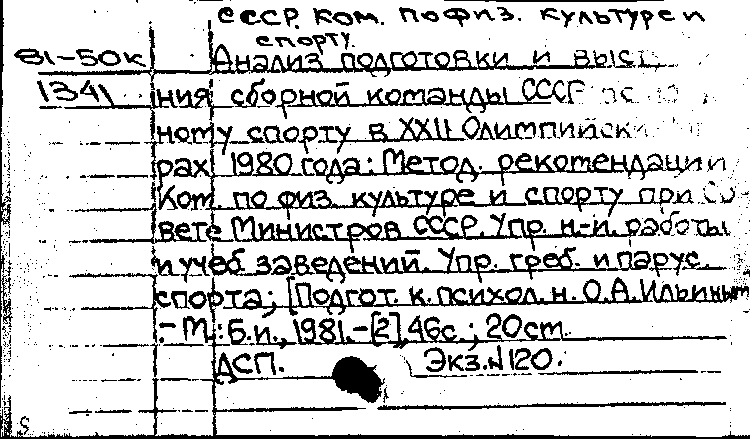 СССР. Ком. по физ. культуре и
спорту.
81-50к Анализ подготовки и выст
1341 ния сборной команды СССР
ному спорту в XXII Олимпийск
рах 1980 года: Метод. рекомендации
Ком. по физ. культуре и спорту при Со-
вете Министров СССР. Упр. н-и. работы
и учеб заведений. Упр. греб. и парус.
спорта; [Подгот. к. психол. н. О.А. Ильиным
.- М.: Б.и., 1981.-[2], 46с.; 20см.
ДСП. Экз. N 120.